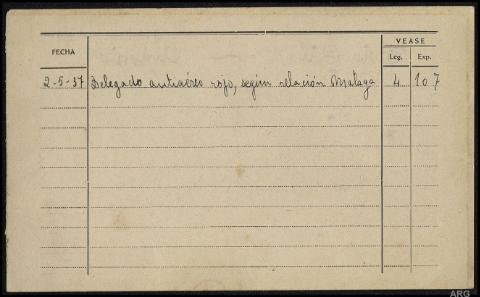 VEASE
FECHA
Leg. Exp.
2-5-37 Delegado antiaéreo rojo, según relación Malaga 4 107
ARG